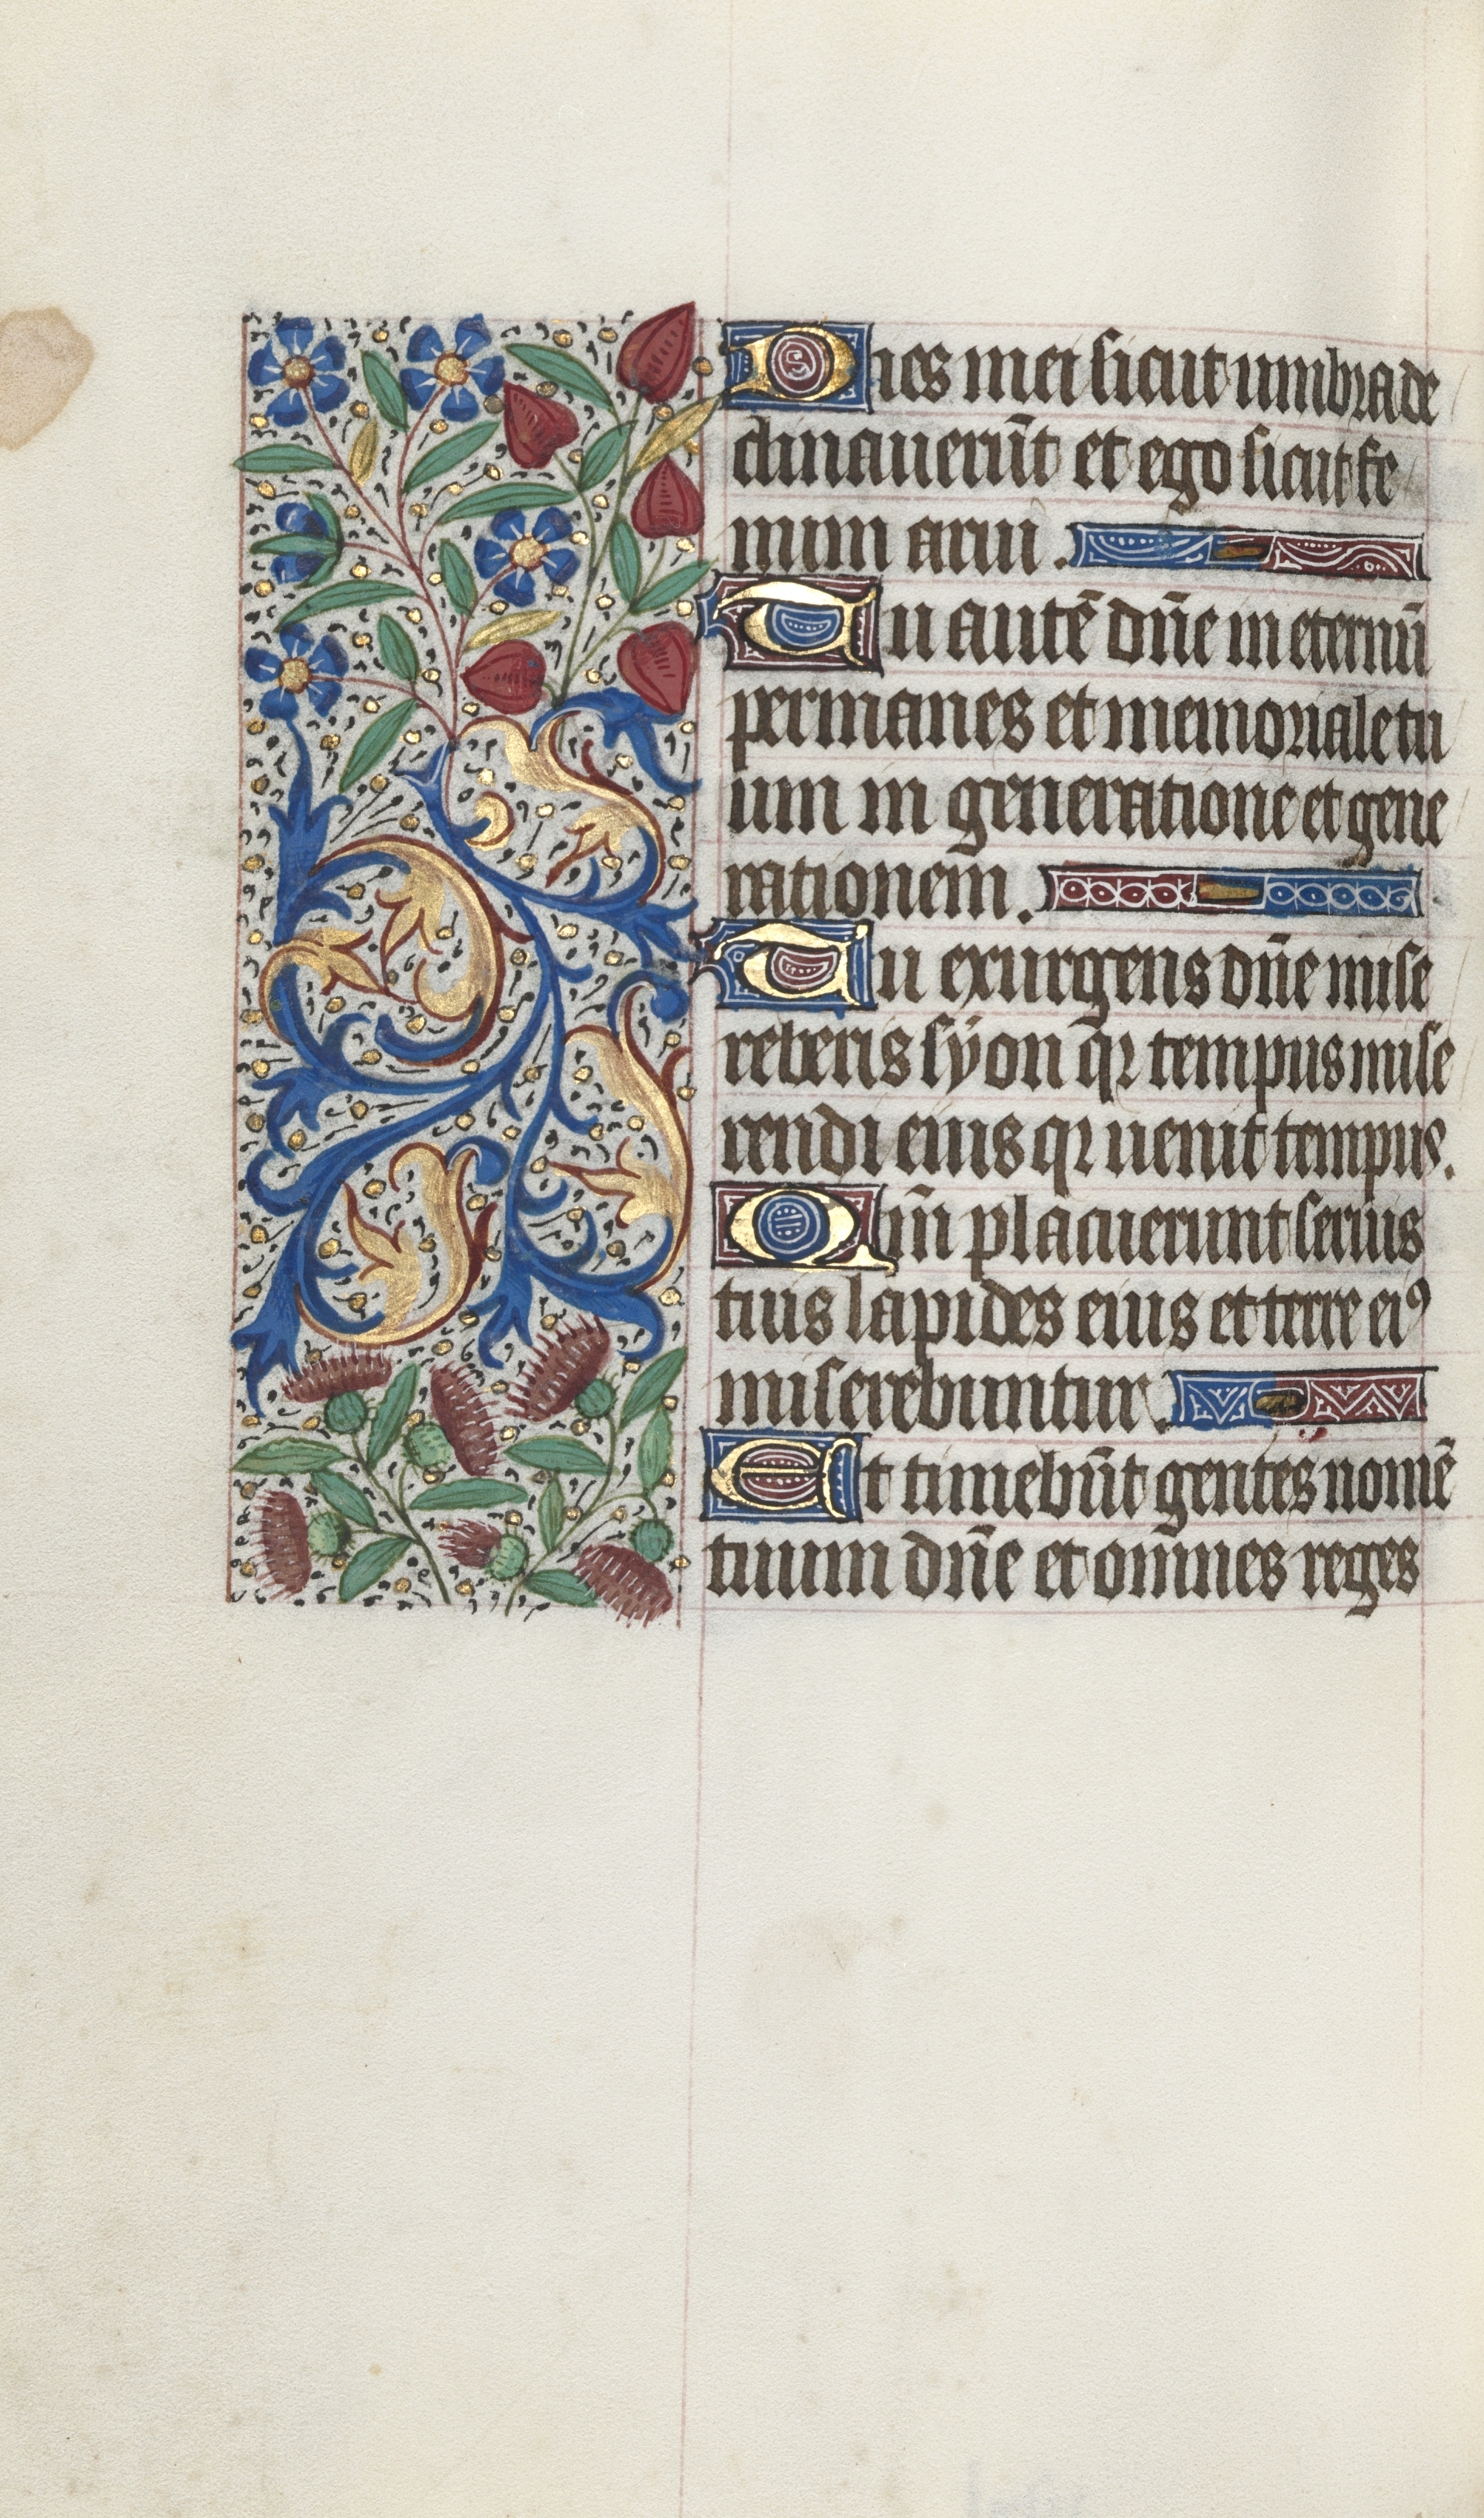 Dies mei sicut umbra de
clinauerūt et ego sicut fe
num arui .
Tu autē dn̄e in eternū
permanes et memoriale tu
um in generatione et gene
rationem .
Tu exurgens dn̄e mise
reberis syon qr̄ tempus mise
rendi eius qr uenit tempus.
Qm̄ placuerunt seruis
tuis lapides eius et terre eiꝰ
miserebuntur .
Et timebūt gentes nomē
tuum dn̄e et om̄nes reges